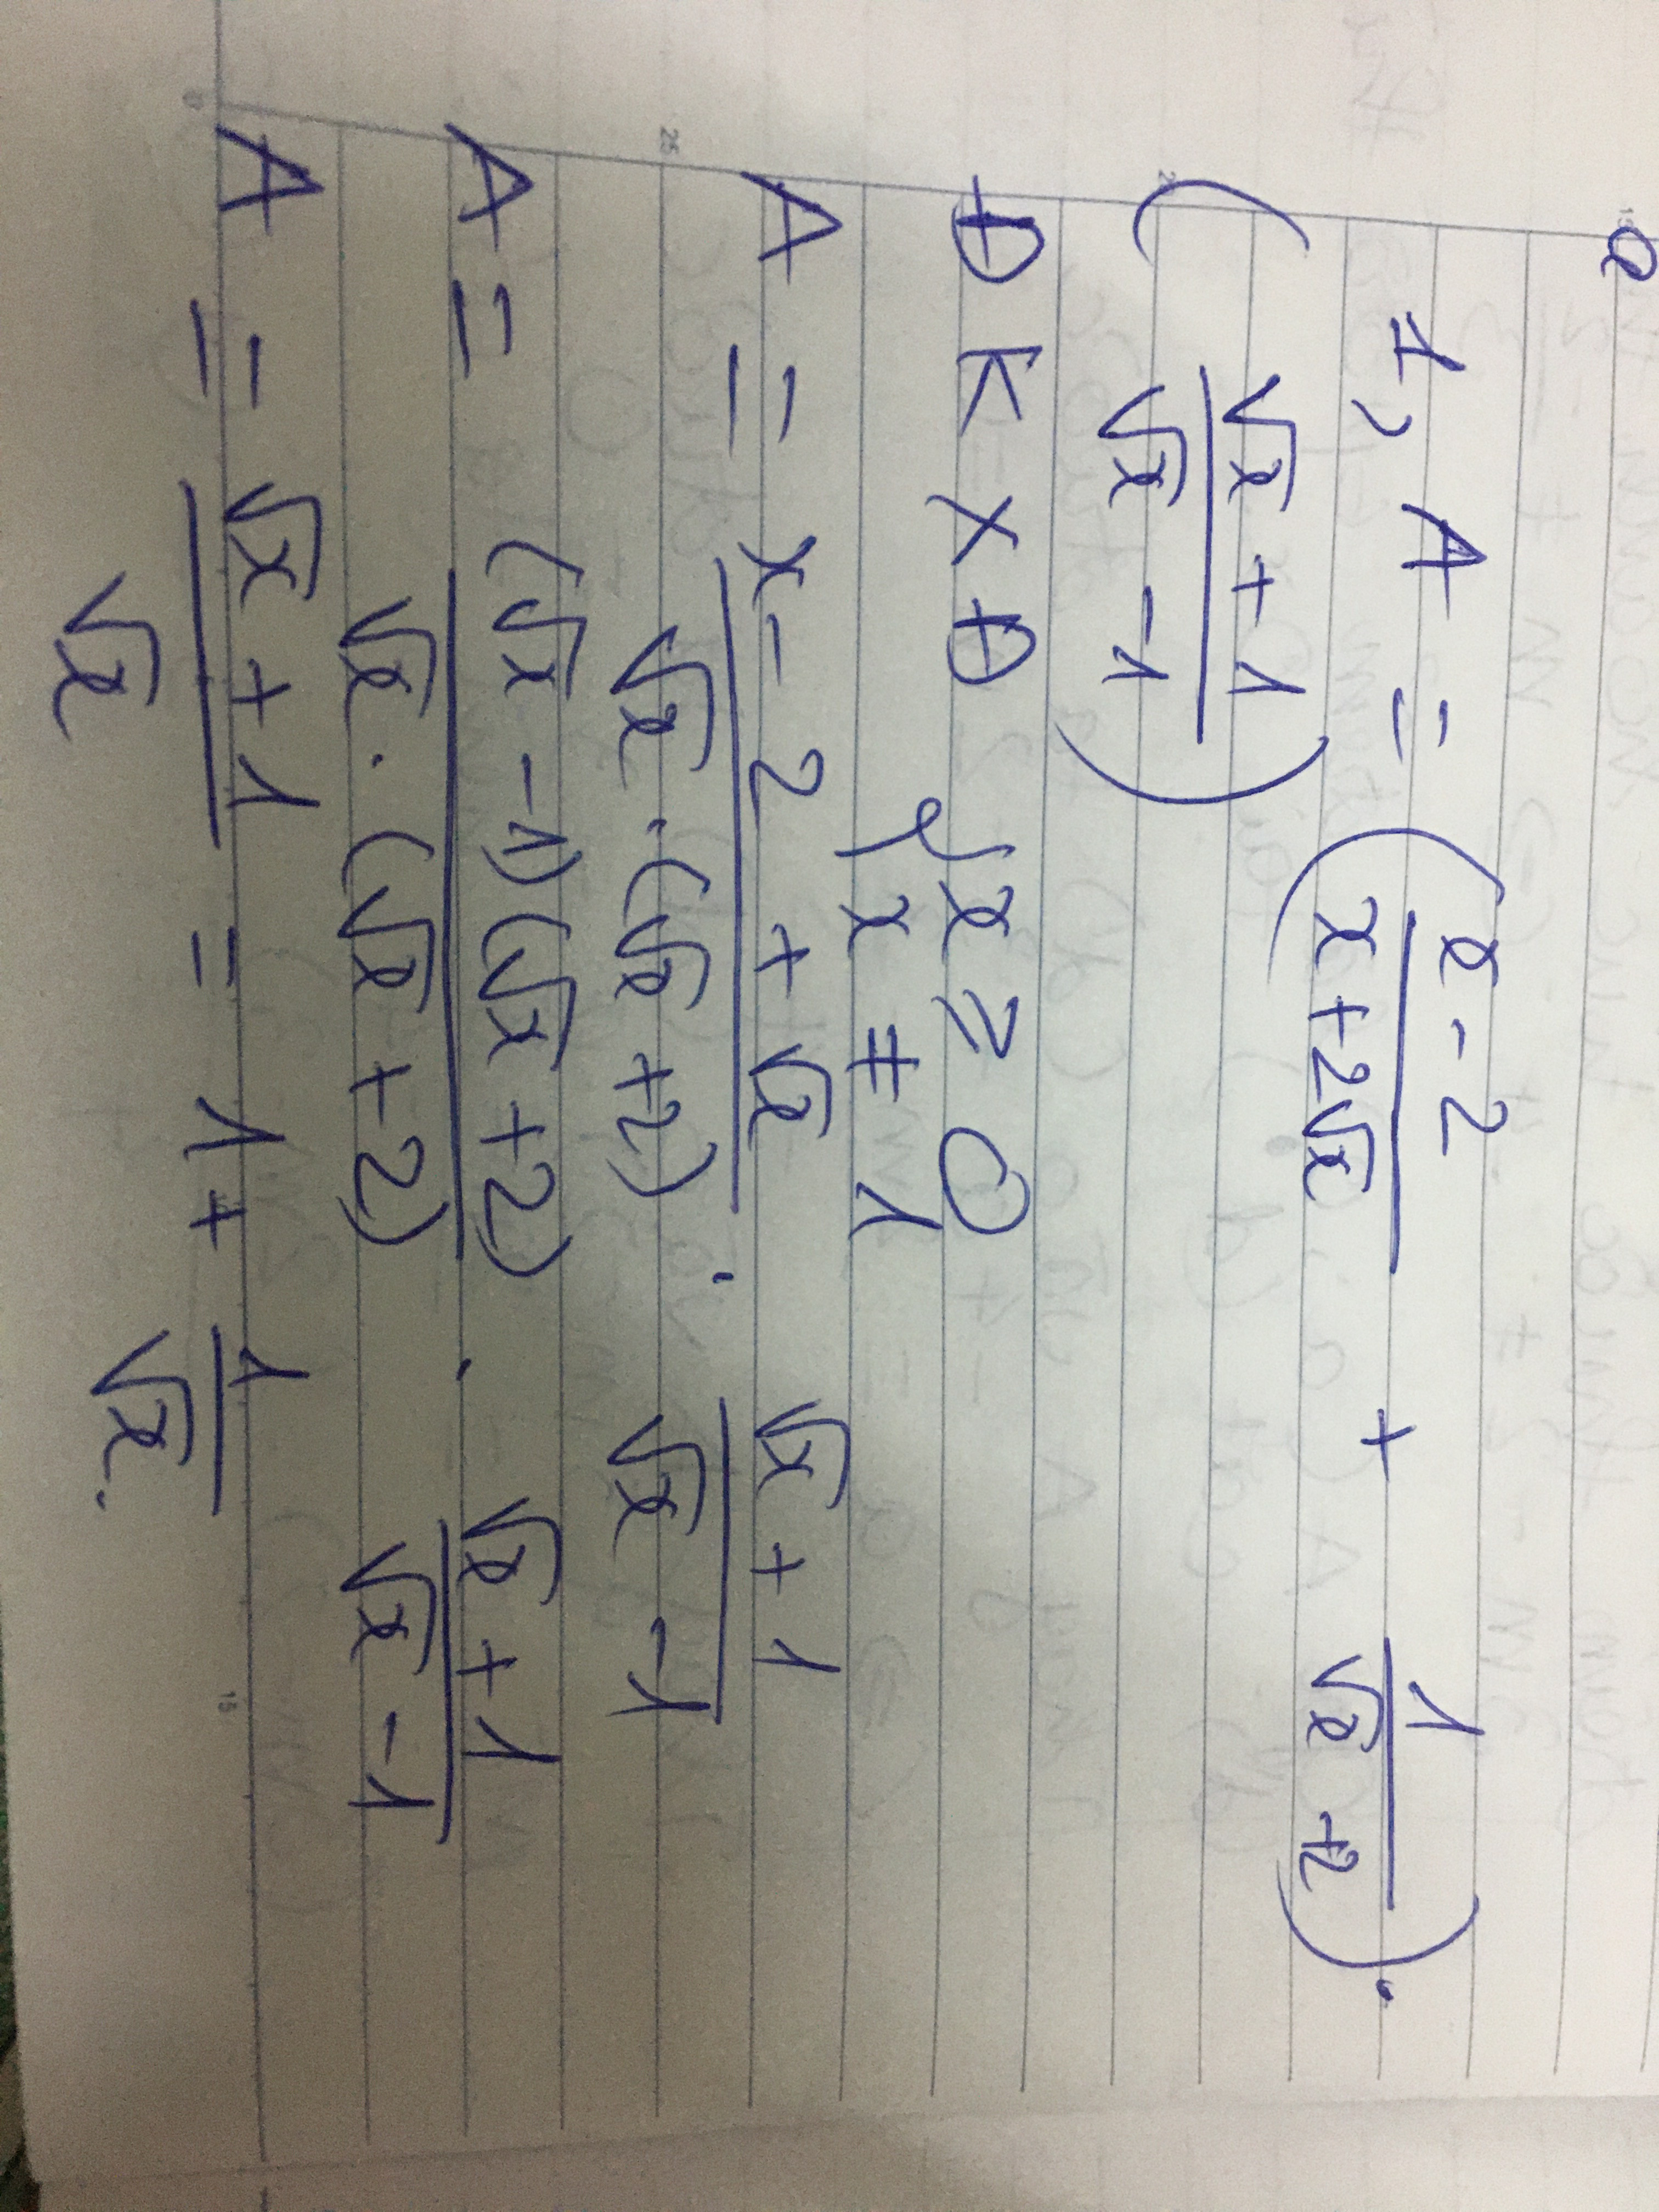 1, A = (x - 2 / x + 2√x + 1 / √x + 2) .
(√x + 1 / √x - 1)
ĐKXĐ { x ≥ 0
x ≠ 1
A = x - 2 + √x / √x . (√x + 2) . √x + 1 / √x - 1
A = (√x - 1)(√x + 2) / √x . (√x + 2) . √x + 1 / √x - 1
A = √x + 1 / √x = 1 + 1 / √x .